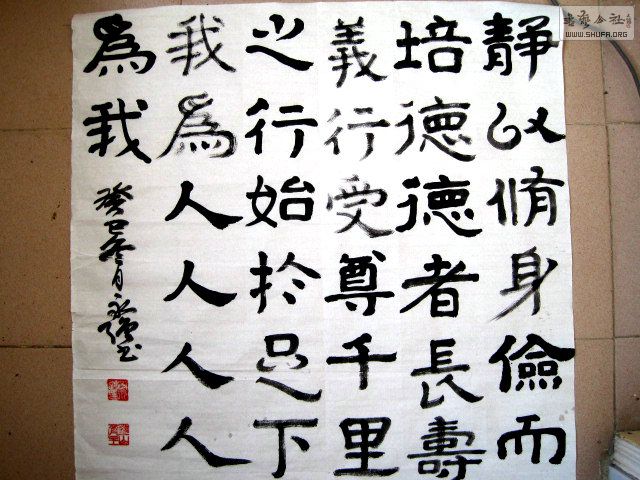 静以脩身儉而
培德德者長壽
義行受尊千里
之行始於足下
我為人人人人
為我
癸巳冬月永强书
書藝公社
WWW.SHUFA.ORG